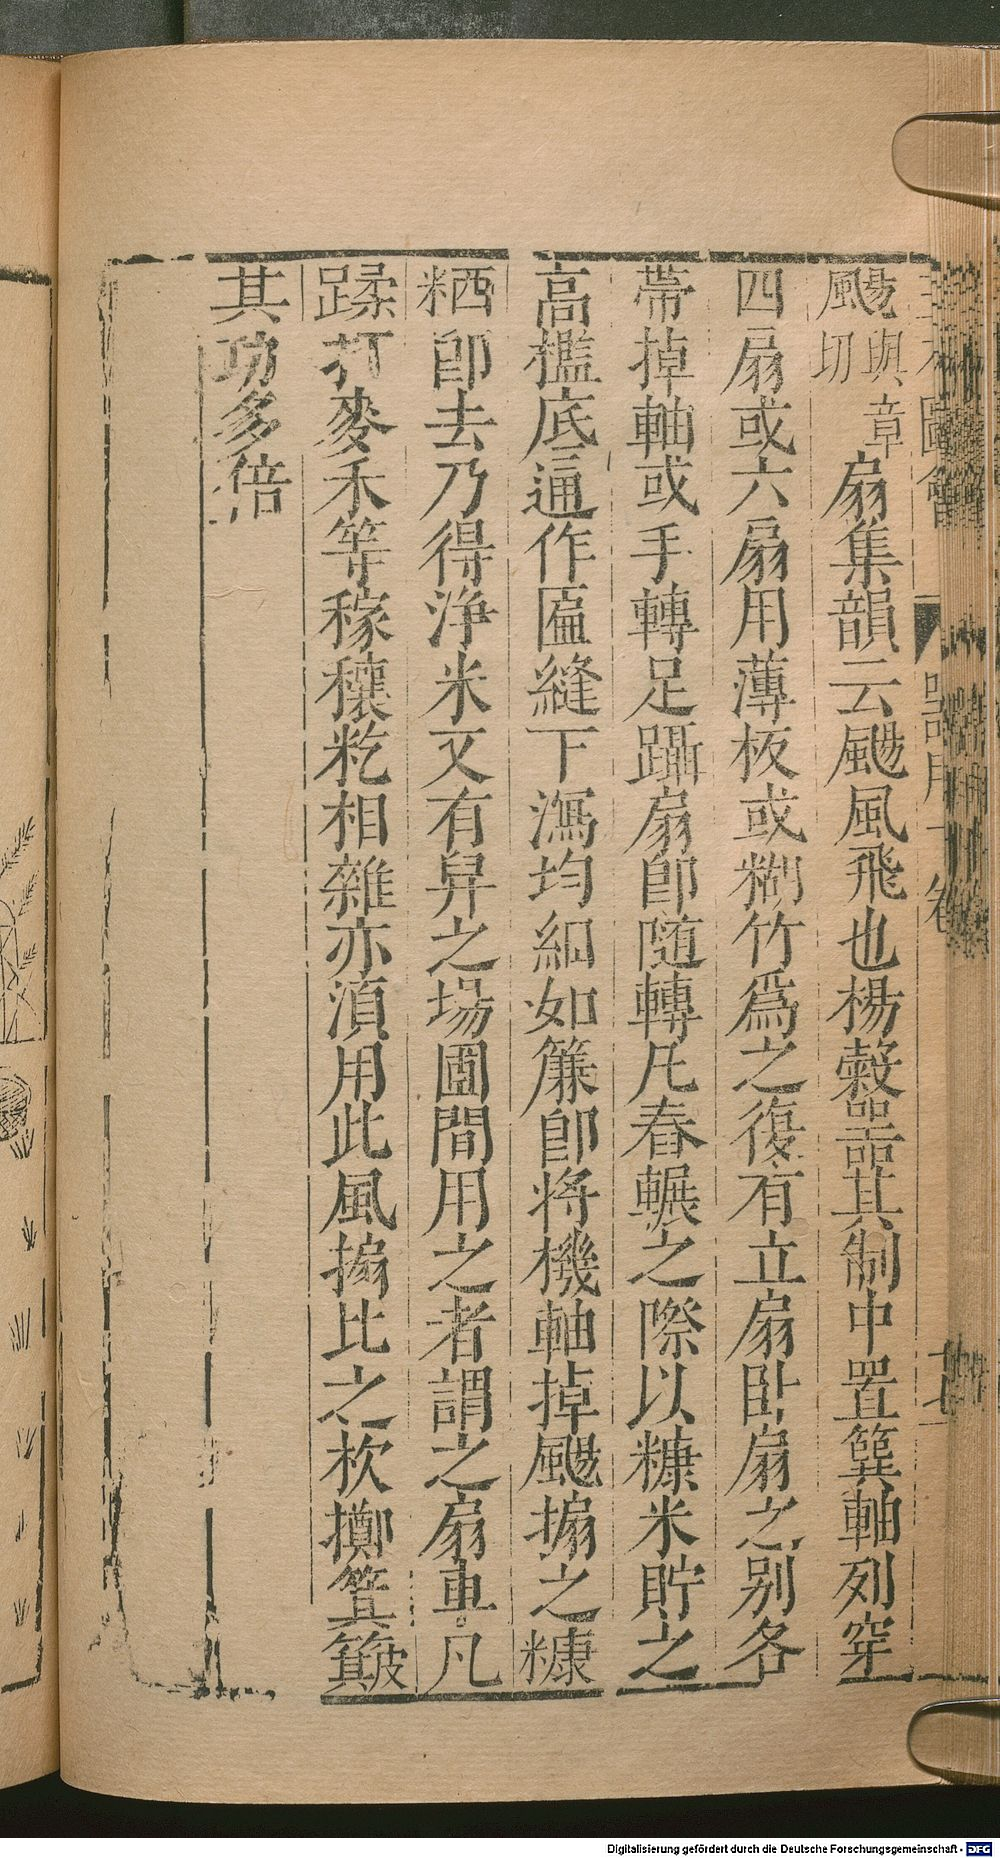 三才圖會 器用十卷
颺與章切扇集韻云颺風飛也楊穀器其制中置簨軸列穿
四扇或六扇用薄板或糊竹為之復有立扇臥扇之別各
帶掉軸或手轉足躡扇即隨轉凡舂輾之際以糠米貯之
高檻底通作匾縫下瀉均細如簾即將機軸掉颺搧之糠
粞即去乃得淨米又有舁之場圃間用之者謂之扇車凡
蹂打麥禾等稼穰籺相雜亦湏用此風搧比之杴擲箕簸
其功多倍
Digitalisierung gefördert durch die Deutsche Forschungsgemeinschaft - DFG